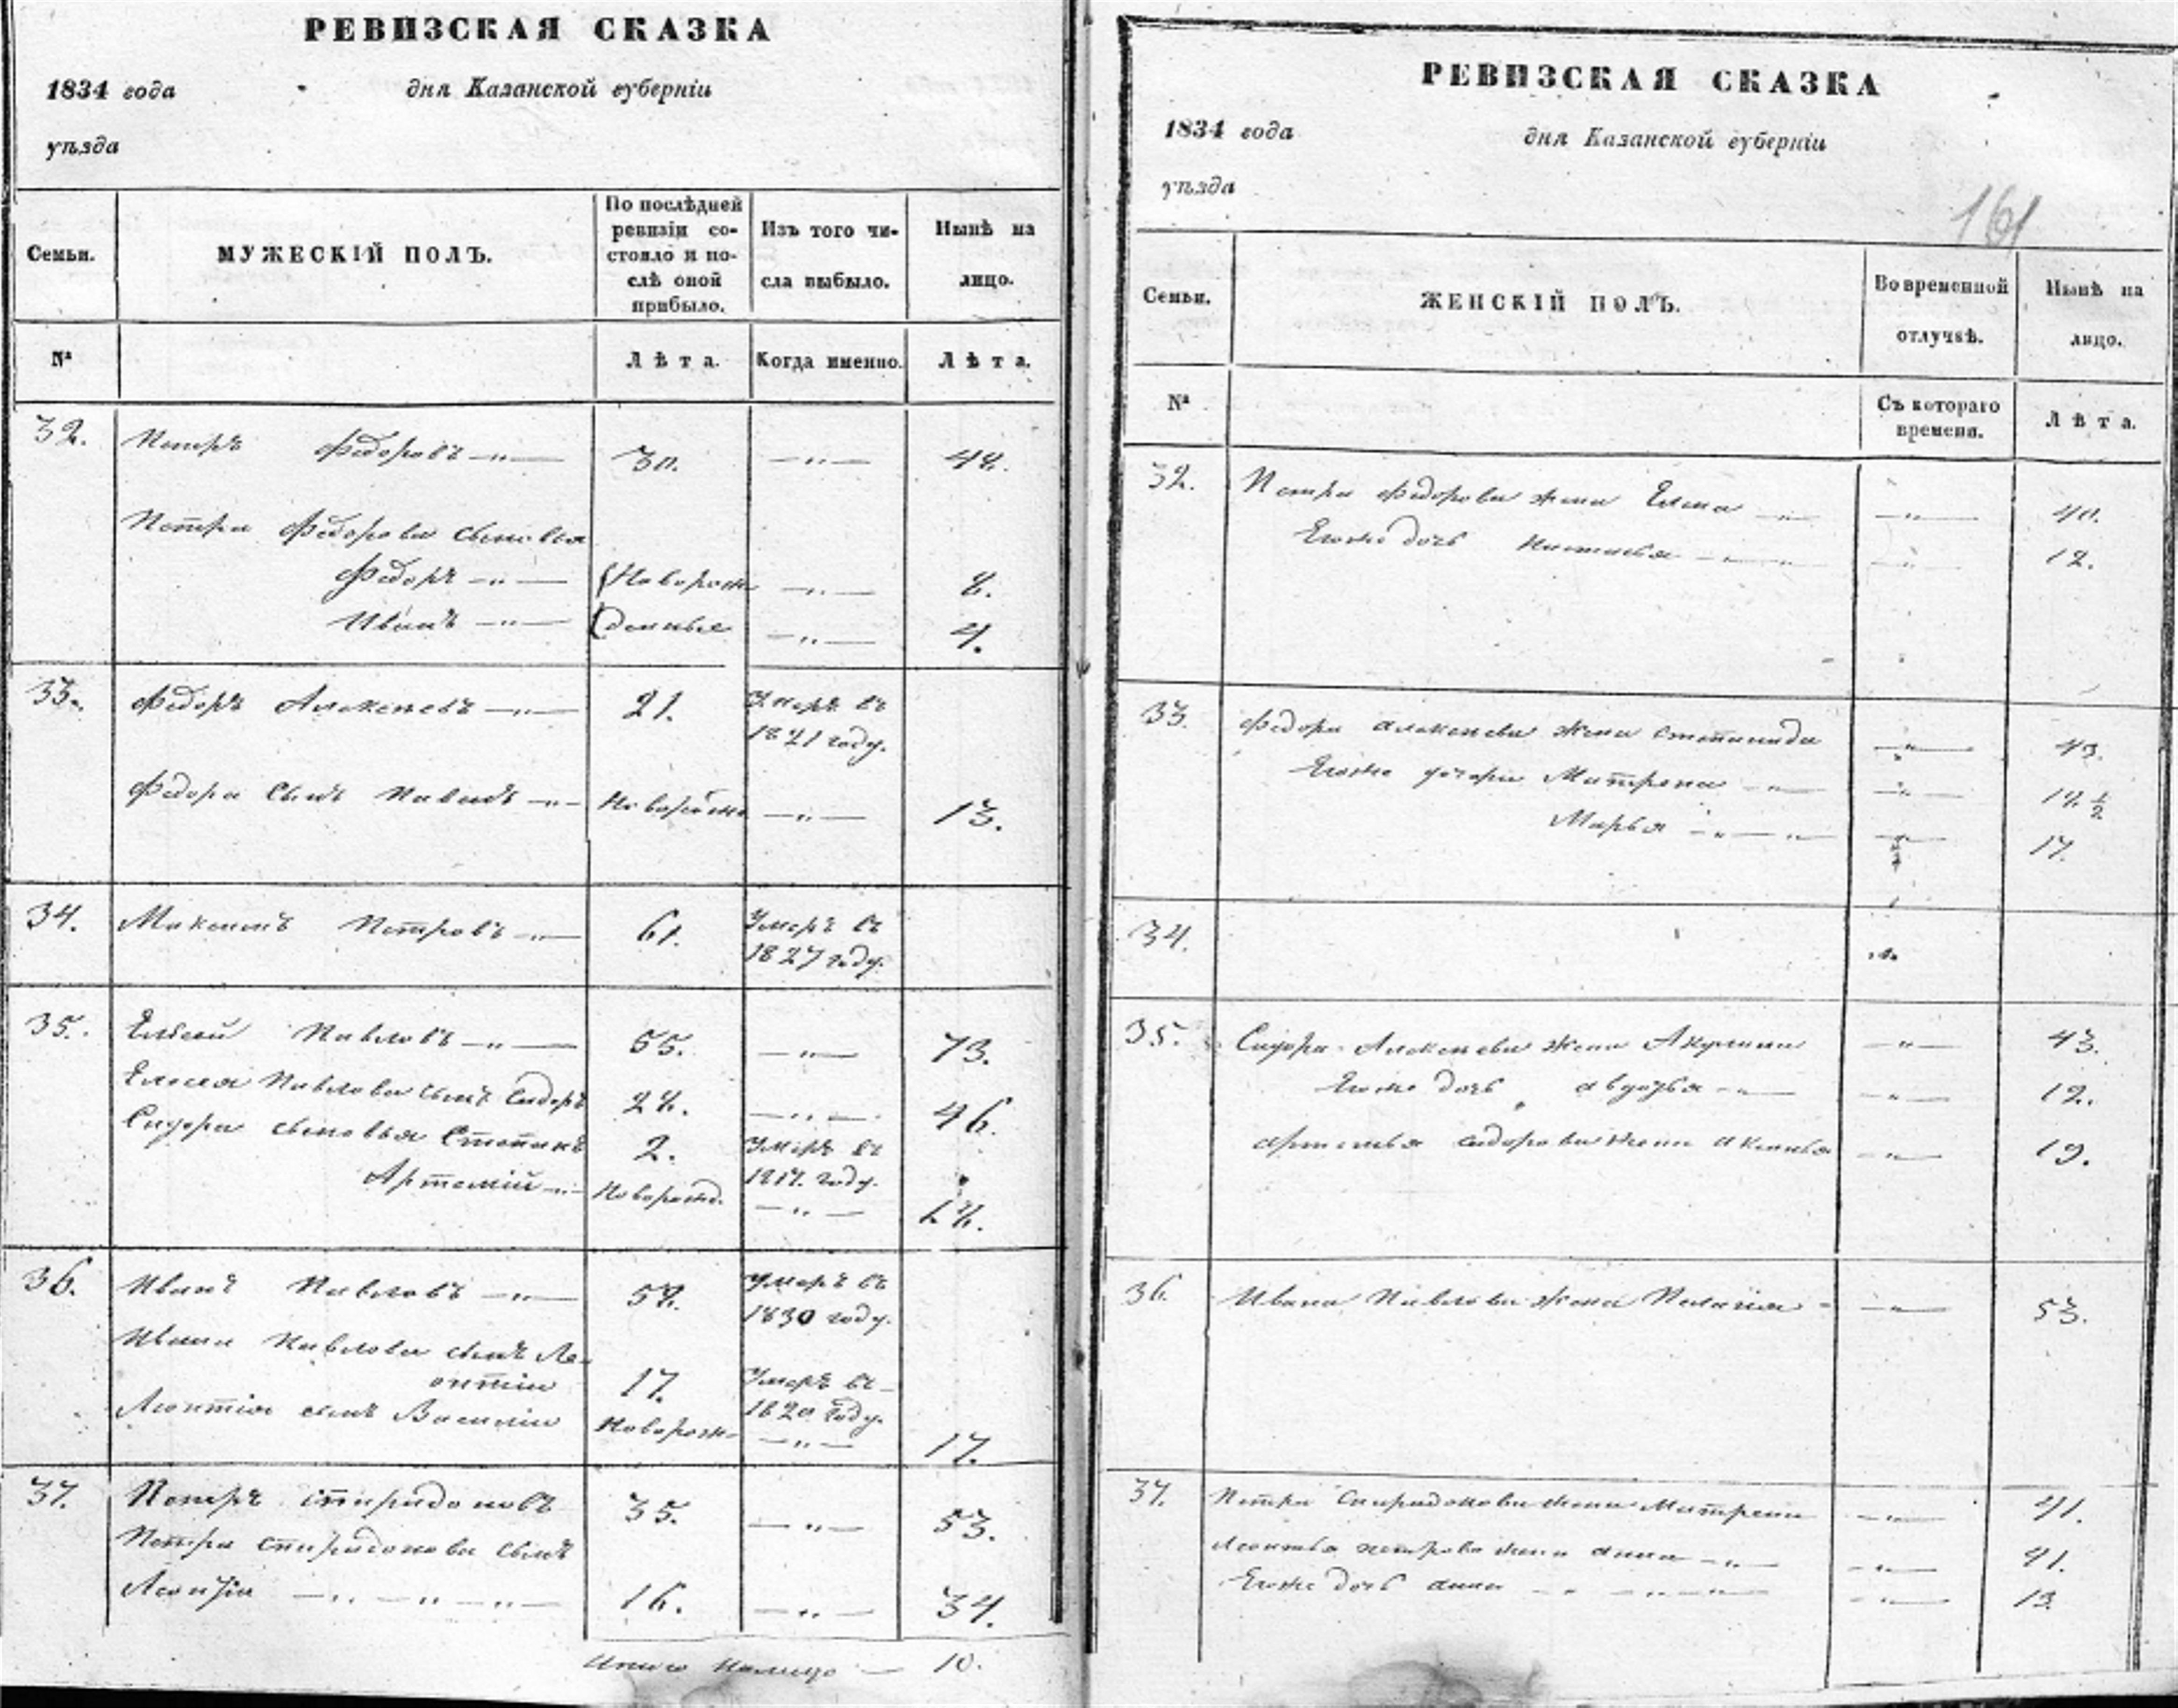 РЕВИЗСКАЯ СКАЗКА
1834 года дня Казанской губерніи
уѣзда
Семьи.
МУЖЕСКІЙ ПОЛЪ.
По послѣдней
ревизіи со-
стояло и по-
слѣ оной
прибыло.
Изъ того чи-
сла выбыло.
Нынѣ на
лицо.
№
Лѣта.
Когда именно.
Лѣта.
32. Петръ Федоровъ —"— 30. —"— 48.
Петра Федорова сыновья
Федоръ —"— Новорож- —"— 8.
Иванъ —"— денные —"— 4.
33. Федоръ Алексеевъ —"— 21. Умеръ въ
1821 году.
Федора сынъ Павелъ —"— Новорожд —"— 13.
34. Максимъ Петровъ —"— 61. Умеръ въ
1827 году.
35. Елисей Павловъ —"— 55. —"— 73.
Елисея Павлова сынъ Сидоръ 28. —"— 46.
Сидора сыновья Степанъ 2. Умеръ въ
году.
Артемий —"— Новорожд. —"— 18.
36. Иванъ Павловъ —"— 58. Умеръ въ
1830 году.
Ивана Павлова сынъ Ле-
онтіи 17. Умеръ въ
1820 году.
Леонтія сынъ Василіи Новорож- —"— 17.
37. Петръ Спиридоновъ 35. —"— 53.
Петра Спиридонова сынъ
Леонтіи —"—"—"— 16. —"— 34.
Итого налицо — 10.
РЕВИЗСКАЯ СКАЗКА
1834 года дня Казанской губерніи
уѣзда
161
Семьи.
ЖЕНСКІЙ ПОЛЪ.
Во временной
отлучкѣ.
Нынѣ на
лицо.
№
Съ котораго
времени.
Лѣта.
32. Петра Федорова жена Елена —"— —"— 40.
Егоже дочь Настасья —"— —"— 12.
33. Федора Алексеева жена Степанида —"— 43.
Егоже дочери Матрена —"— —"— 18 ½
Марья —"—"— —"— 17.
34. "
35. Сидора Алексеева жена Акулина —"— 43.
Егоже дочь Авдотья —"— —"— 12.
Артемья Сидорова жена Аксинья —"— 19.
36. Ивана Павлова жена Пелагия —"— 53.
37. Петра Спиридонова жена Матрена —"— 41.
Леонтья Петрова жена Анна —"— —"— 41.
Егоже дочь Анна —"—"— —"— 13.